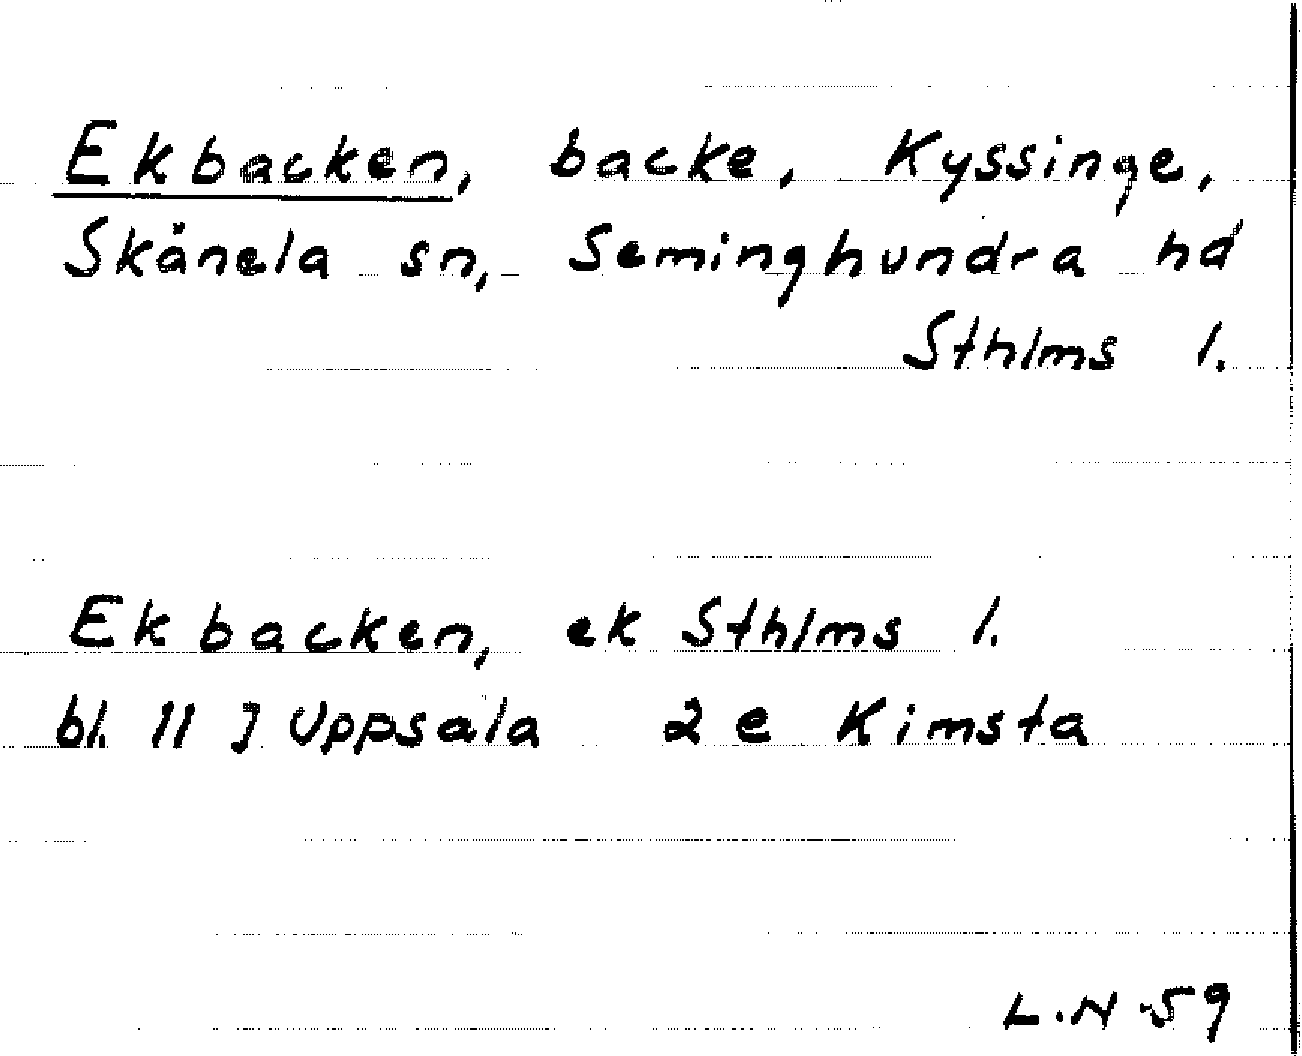 Ekbacken, backe, Kyssinge,
Skånela sn, Seminghundra hd
Sthlms l.
Ekbacken, ek Sthlms l.
bl. 11 J Uppsala 2 e Kimsta
L.N-59